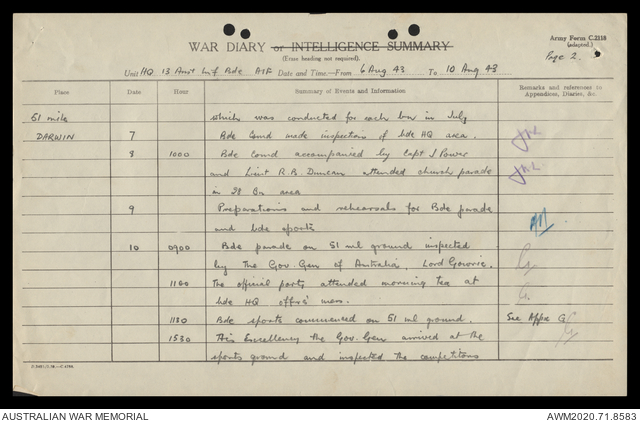 Army Form C.2118
(adapted.)
WAR DIARY or INTELLIGENCE SUMMARY
(Erase heading not required).
Page 2.
Unit HQ 13 Aust Inf Bde AIF Date and Time—From 6 Aug 43 To 10 Aug 43
Place Date Hour Summary of Events and Information Remarks and references to Appendices, Diaries, &c.
51 mile which was conducted for each bn in July
DARWIN 7 Bde Comd made inspection of bde HQ area.
8 1000 Bde Comd accompanied by Capt J Power
and Lieut R.B. Duncan attended church parade
in 28 Bn area
9 Preparations and rehearsals for Bde parade
and bde sports
10 0900 Bde parade on 51 ml ground inspected
by The Gov. Gen of Australia Lord Gowrie.
1100 The official party attended morning tea at
bde HQ offrs' mess.
1130 Bde sports commenced on 51 ml ground. See Appx G
1530 His Excellency the Gov. Gen arrived at the
sports ground and inspected the competitors
AUSTRALIAN WAR MEMORIAL
AWM2020.71.8583